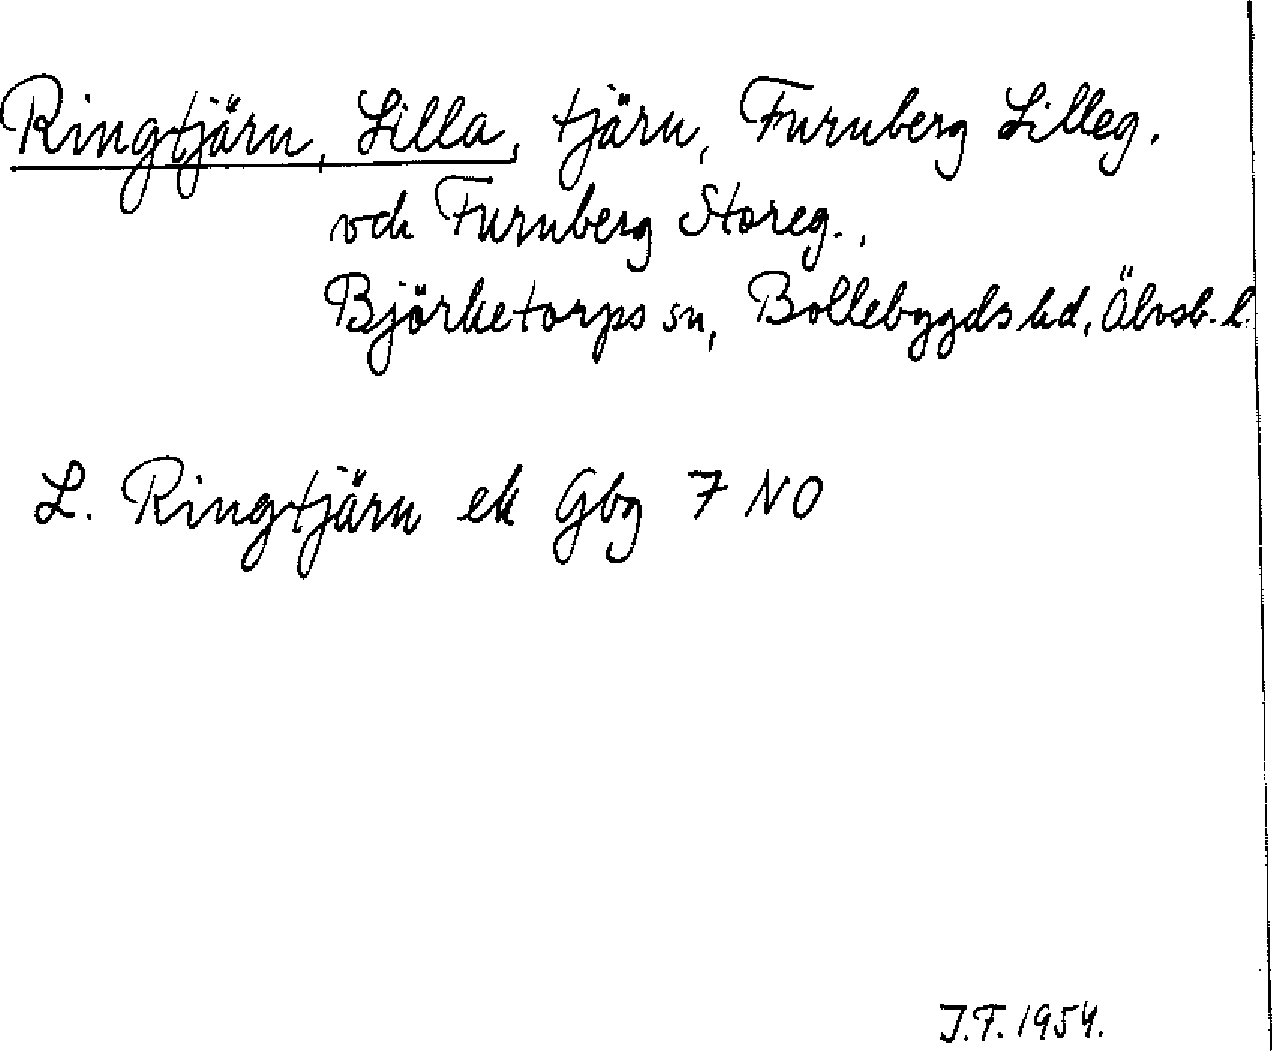 Ringtjärn, Lilla, tjärn, Furuberg Lilleg.
och Furuberg Storeg.,
Björketorps sn, Bollebygds hd, Älvsb. l.
L. Ringtjärn ek Gbg 7 NO
J.F. 1954.